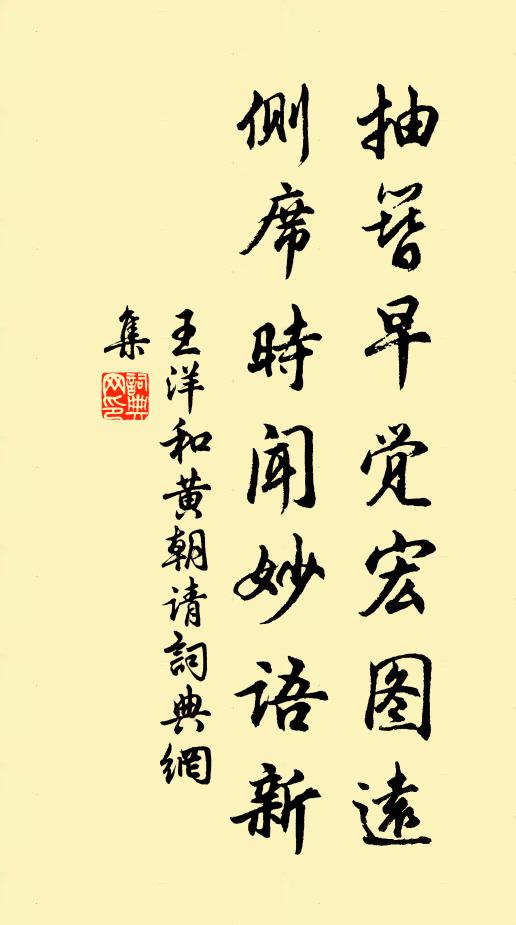 抽簪早觉宏图遠
侧席時闻妙语新
王洋和黄朝请詞典網
集
詞典网印